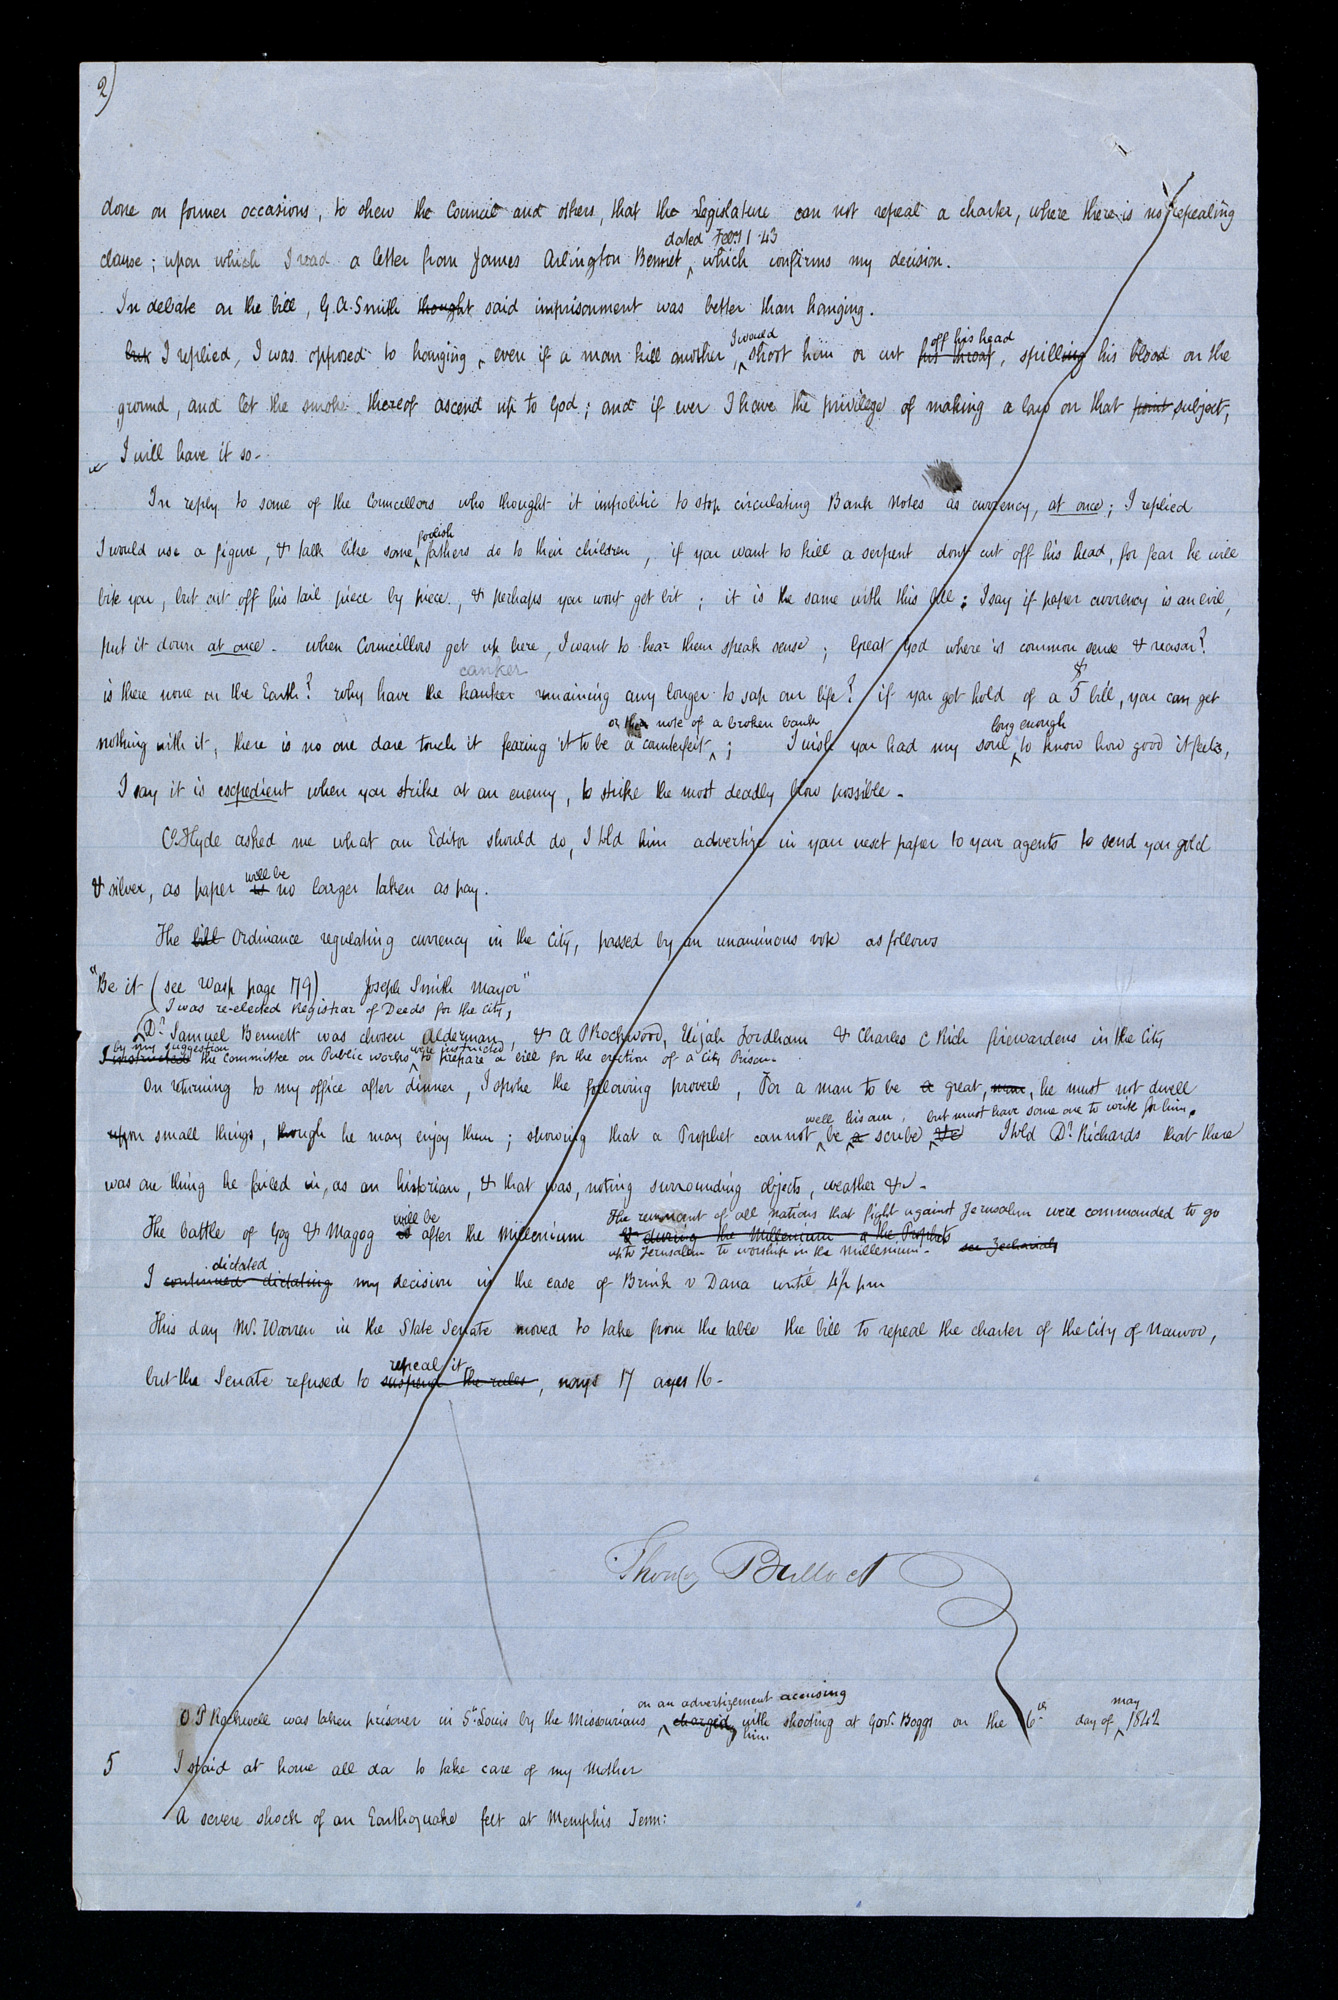 2)
done on former occasions, to shew the Council and others, that the Legislature can not repeal a charter, where there is no repealing
dated Feby 1. 43
clause; upon which I read a letter from James Arlington Bennet, which confirms my decision.
In debate on the bill, G. A. Smith thought said imprisonment was better than hanging.
I would off his head
but I replied, I was opposed to hanging, even if a man kill another, shoot him or cut his throat, spilling his blood on the
ground, and let the smoke thereof ascend up to God; and if ever I have the privilege of making a law on that point subject,
I will have it so-
In reply to some of the Councillors who thought it impolitic to stop circulating Bank Notes as currency, at once; I replied
foolish
I would use a figure, & talk like some fathers do to their children, if you want to kill a serpent dont cut off his head, for fear he will
bite you, but cut off his tail piece by piece, & perhaps you wont get bit; it is the same with this bill: I say if paper currency is an evil,
put it down at once. when Councillors get up here, I want to hear them speak sense; Great God where is common sense & reason?
canker $
is there none on the Earth? why have the kanker remaining any longer to sap our life? if you got hold of a 5 bill, you can get
or the note of a broken bank long enough
nothing with it, there is no one dare touch it fearing it to be a counterfeit; I wish you had my soul to know how good it feels,
I say it is expedient when you strike at an enemy, to strike the most deadly blow possible-
O. Hyde asked me what an Editor should do, I told him advertize in your next paper to your agents to send you gold
will be
& silver, as paper is no larger taken as pay.
The bill Ordinance regulating currency in the City, passed by an unanimous vote as follows
"Be it (see Wasp page 179) Joseph Smith Mayor"
I was re-elected Registrar of Deeds for the City,
Dr. Samuel Bennett was chosen Alderman, & A P Rockwood, Elijah Fordham & Charles C Rich firewardens in the City
by my suggestion were instructed
I instructed the Committee on Public works to prepare a bill for the erection of a City Prison-
On returning to my office after dinner, I spoke the following proverb, For a man to be a great, man, he must not dwell
well his own, but must have some one to write for him.
upon small things, though he may enjoy them; showing that a Prophet cannot be a scribe &c I told Dr. Richards that there
was one thing he failed in, as an historian, & that was, noting surrounding objects, weather &c-
will be The remnant of all nations that fight against Jerusalem were commanded to go
The battle of Gog & Magog is after the Millenium & during the Millenium & the Prophets see Zechariah
up to Jerusalem to worship in the Millenium-
dictated
I continued dictating my decision in the case of Brink v Dana until 4½ pm
This day Mr. Warren in the State Senate moved to take from the table the bill to repeal the charter of the City of Nauvoo,
repeal it
but the Senate refused to suspend the rules, nays 17 ayes 16-
Thomas Bullock
on an advertizement accusing may
O P Rockwell was taken prisoner in St. Louis by the Missourians charged with shooting at Govr. Boggs on the 6th day of 1842
him
5 I staid at home all da to take care of my Mother
A severe shock of an Earthquake felt at Memphis Tenn: